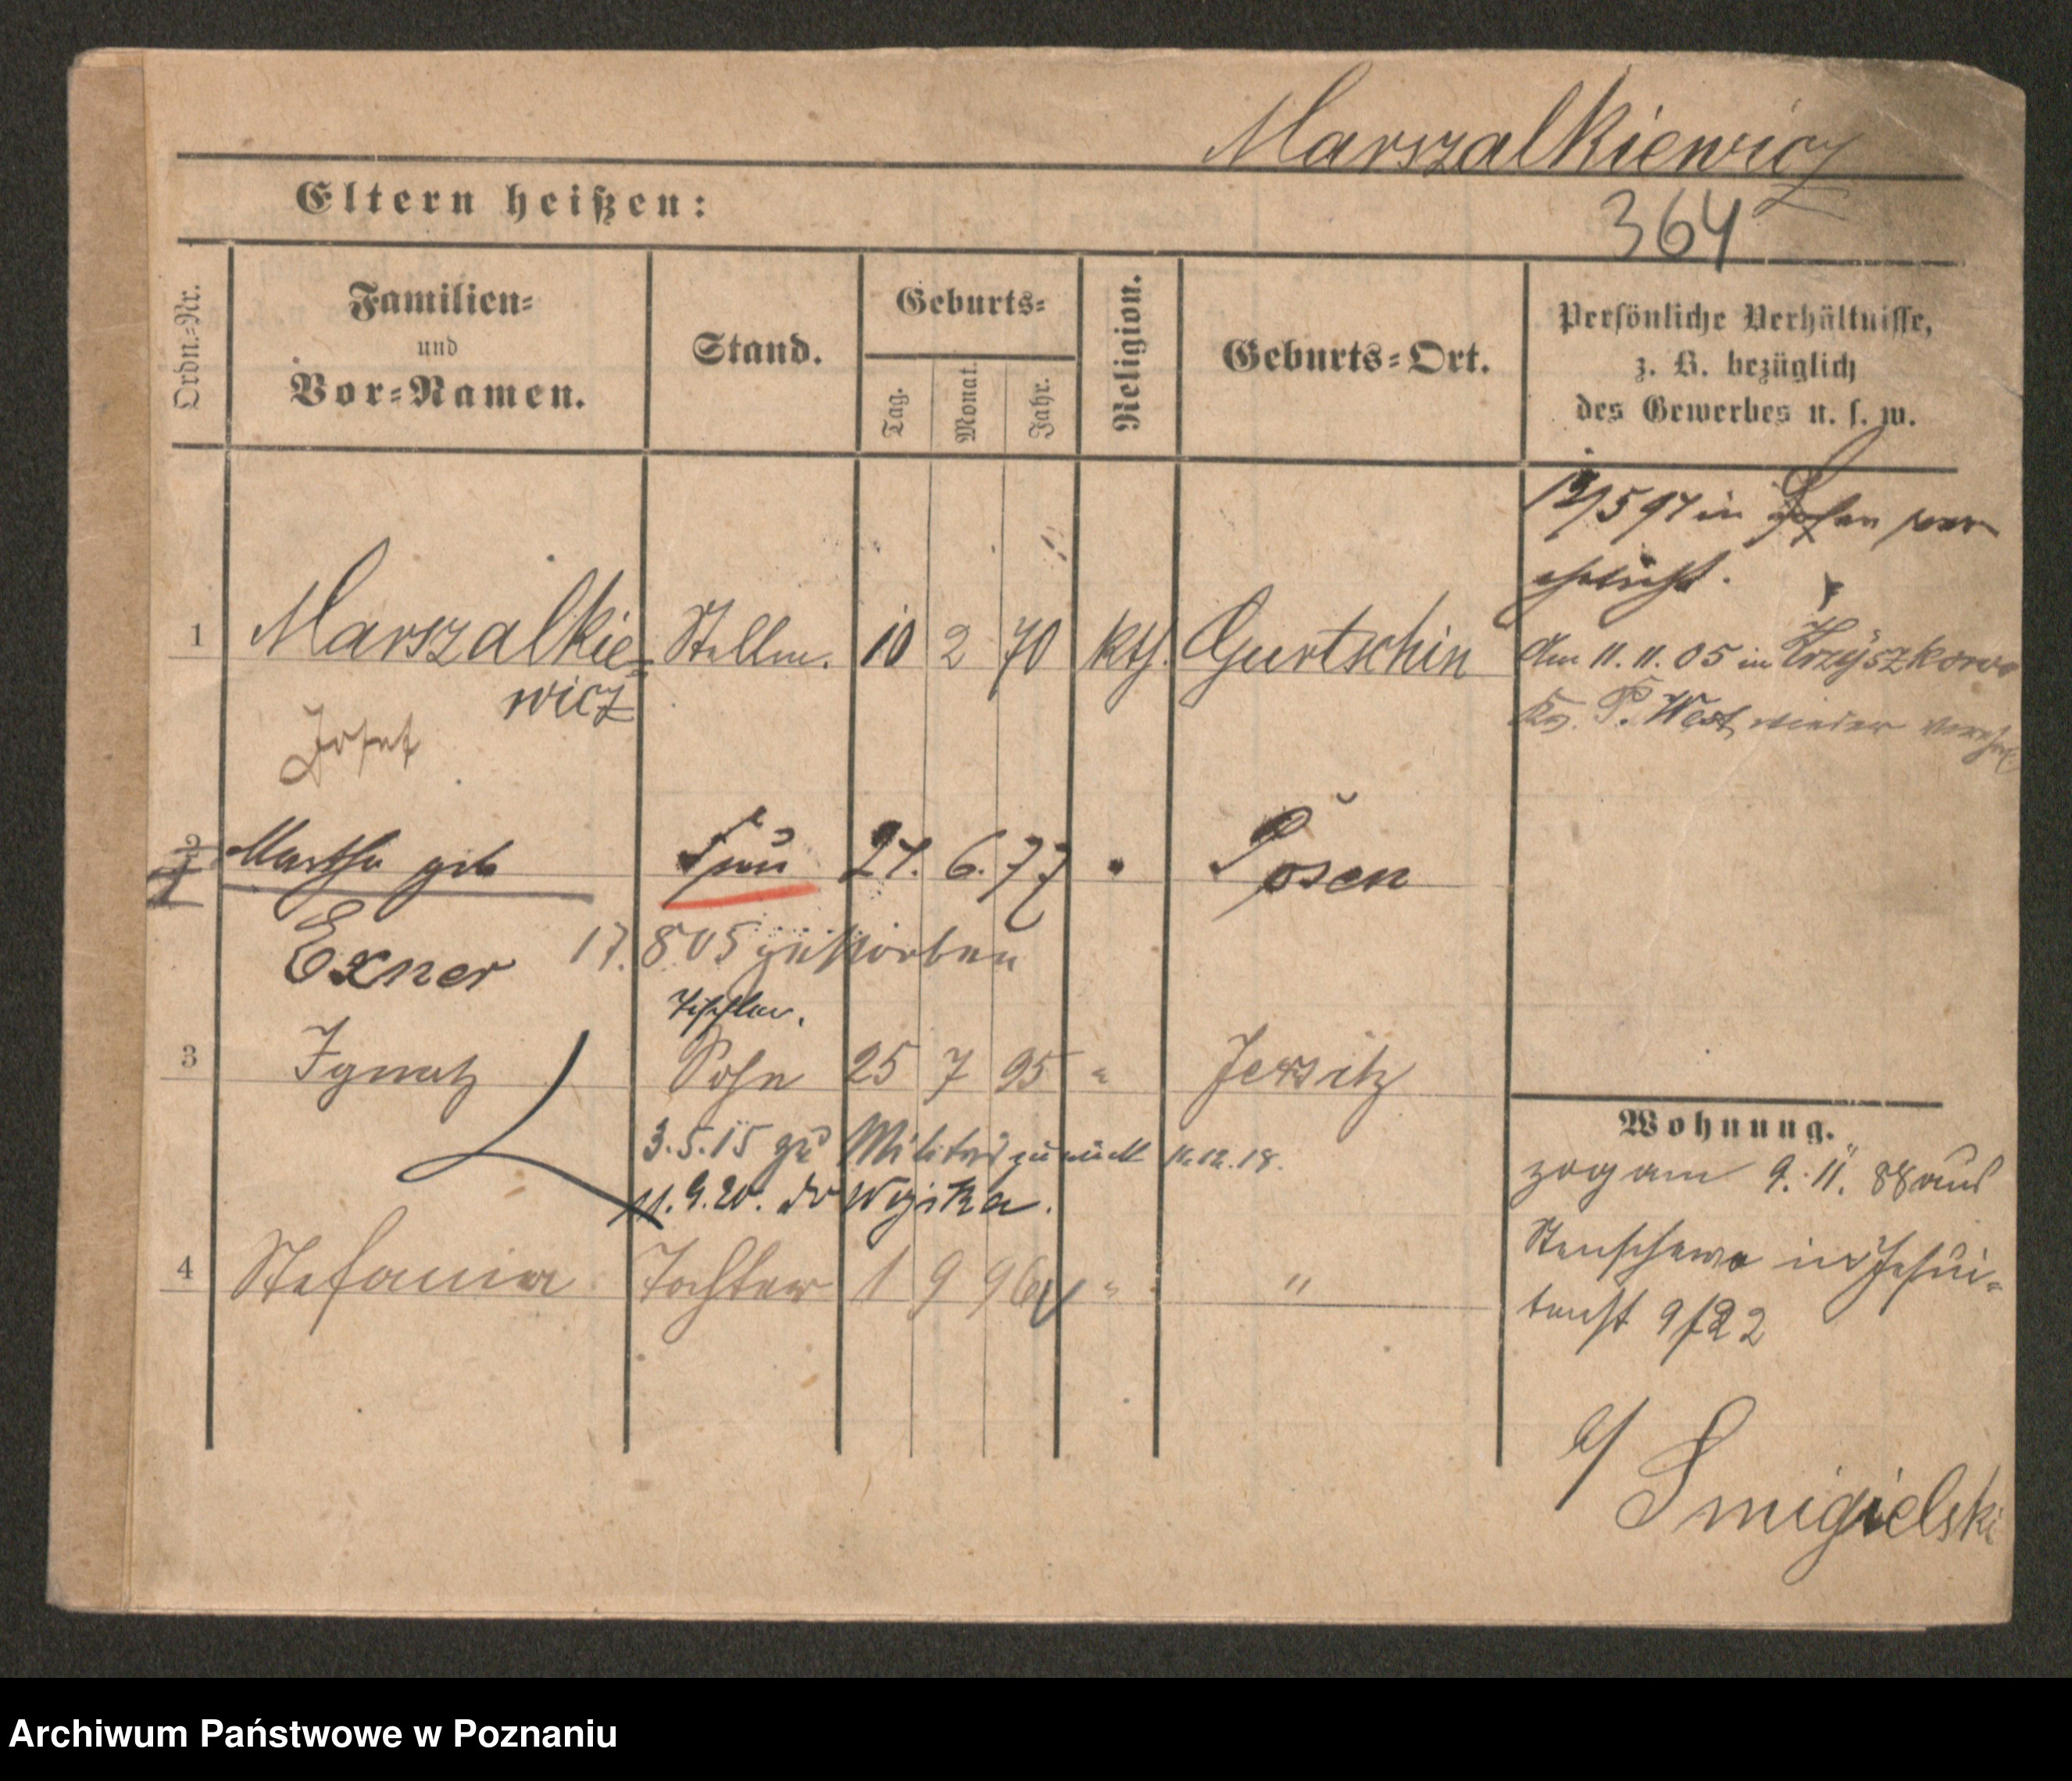 Marszalkiewicz
Eltern heißen:
364
Ordn.=Nr.
Familien=
und
Vor=Namen.
Stand.
Geburts=
Tag.
Monat.
Jahr.
Religion.
Geburts=Ort.
Persönliche Verhältnisse,
z. B. bezüglich
des Gewerbes u. s. w.
in Posen ver
ehelicht.
1 Marszalkie= Stellm. 10 2 70 kth. Gurtschin
wicz
Josef
Am 11.11.05 in Krzyszkowo
P. West wieder vereh
2 Martha geb Frau 21. 6. 77 " Posen
Exner
17. 8 05 gestorben
Tischler.
3 Ignatz Sohn 25 7 95 " Jersitz
3.5.15 zu Militär zurück 12.18.
11.9.20.
4 Stefania Tochter 1 9 96 " "
Wohnung.
zog am 9. 11. 88 aus
Stenschewo in Jesui=
tenst 9/22
b/ Smigielski
Archiwum Państwowe w Poznaniu